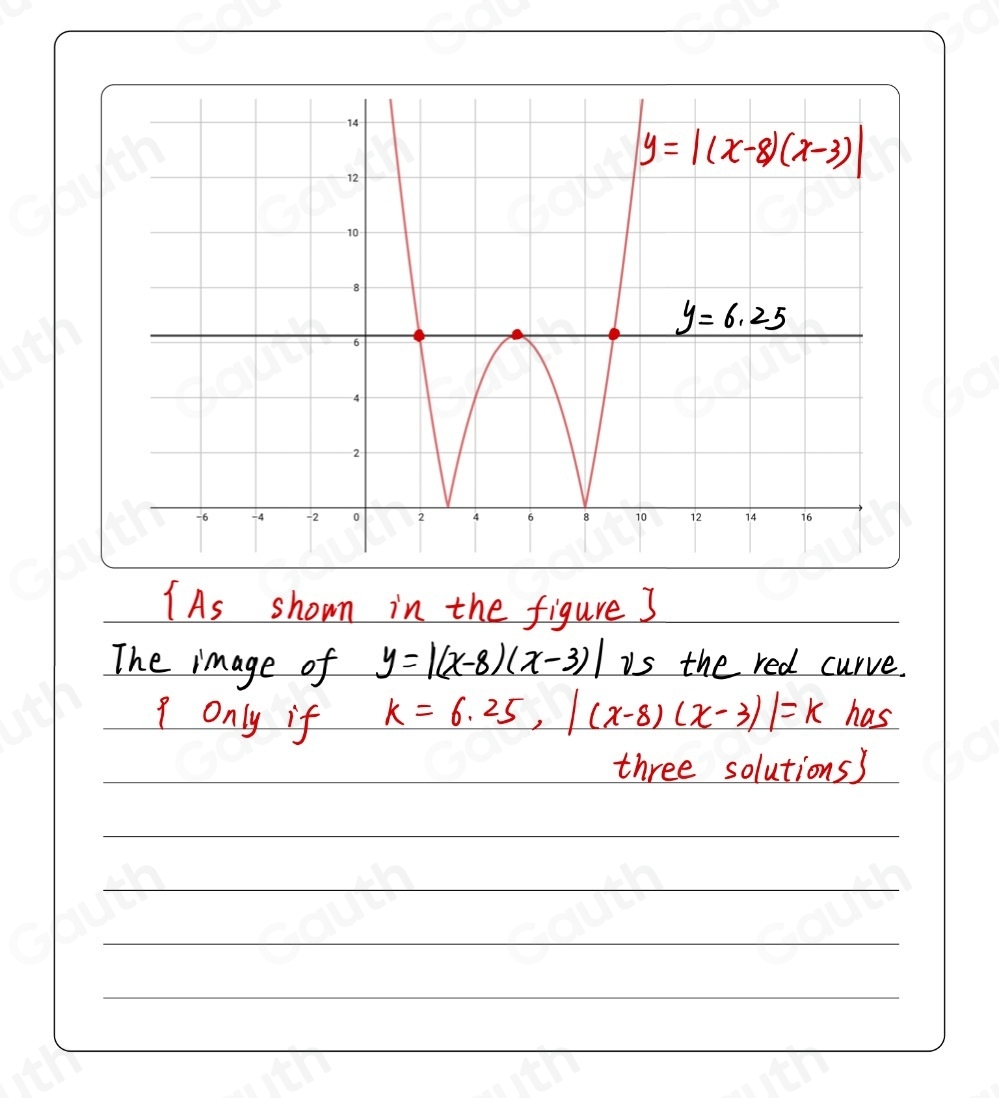 14
y = |(x-8)(x-3)|
12
10
8
y = 6.25
6
4
2
-6 -4 -2 0 2 4 6 8 10 12 14 16
{As shown in the figure}
The image of y = |(x-8)(x-3)| is the red curve.
{Only if k = 6.25, |(x-8)(x-3)| = k has
three solutions}
Gauth